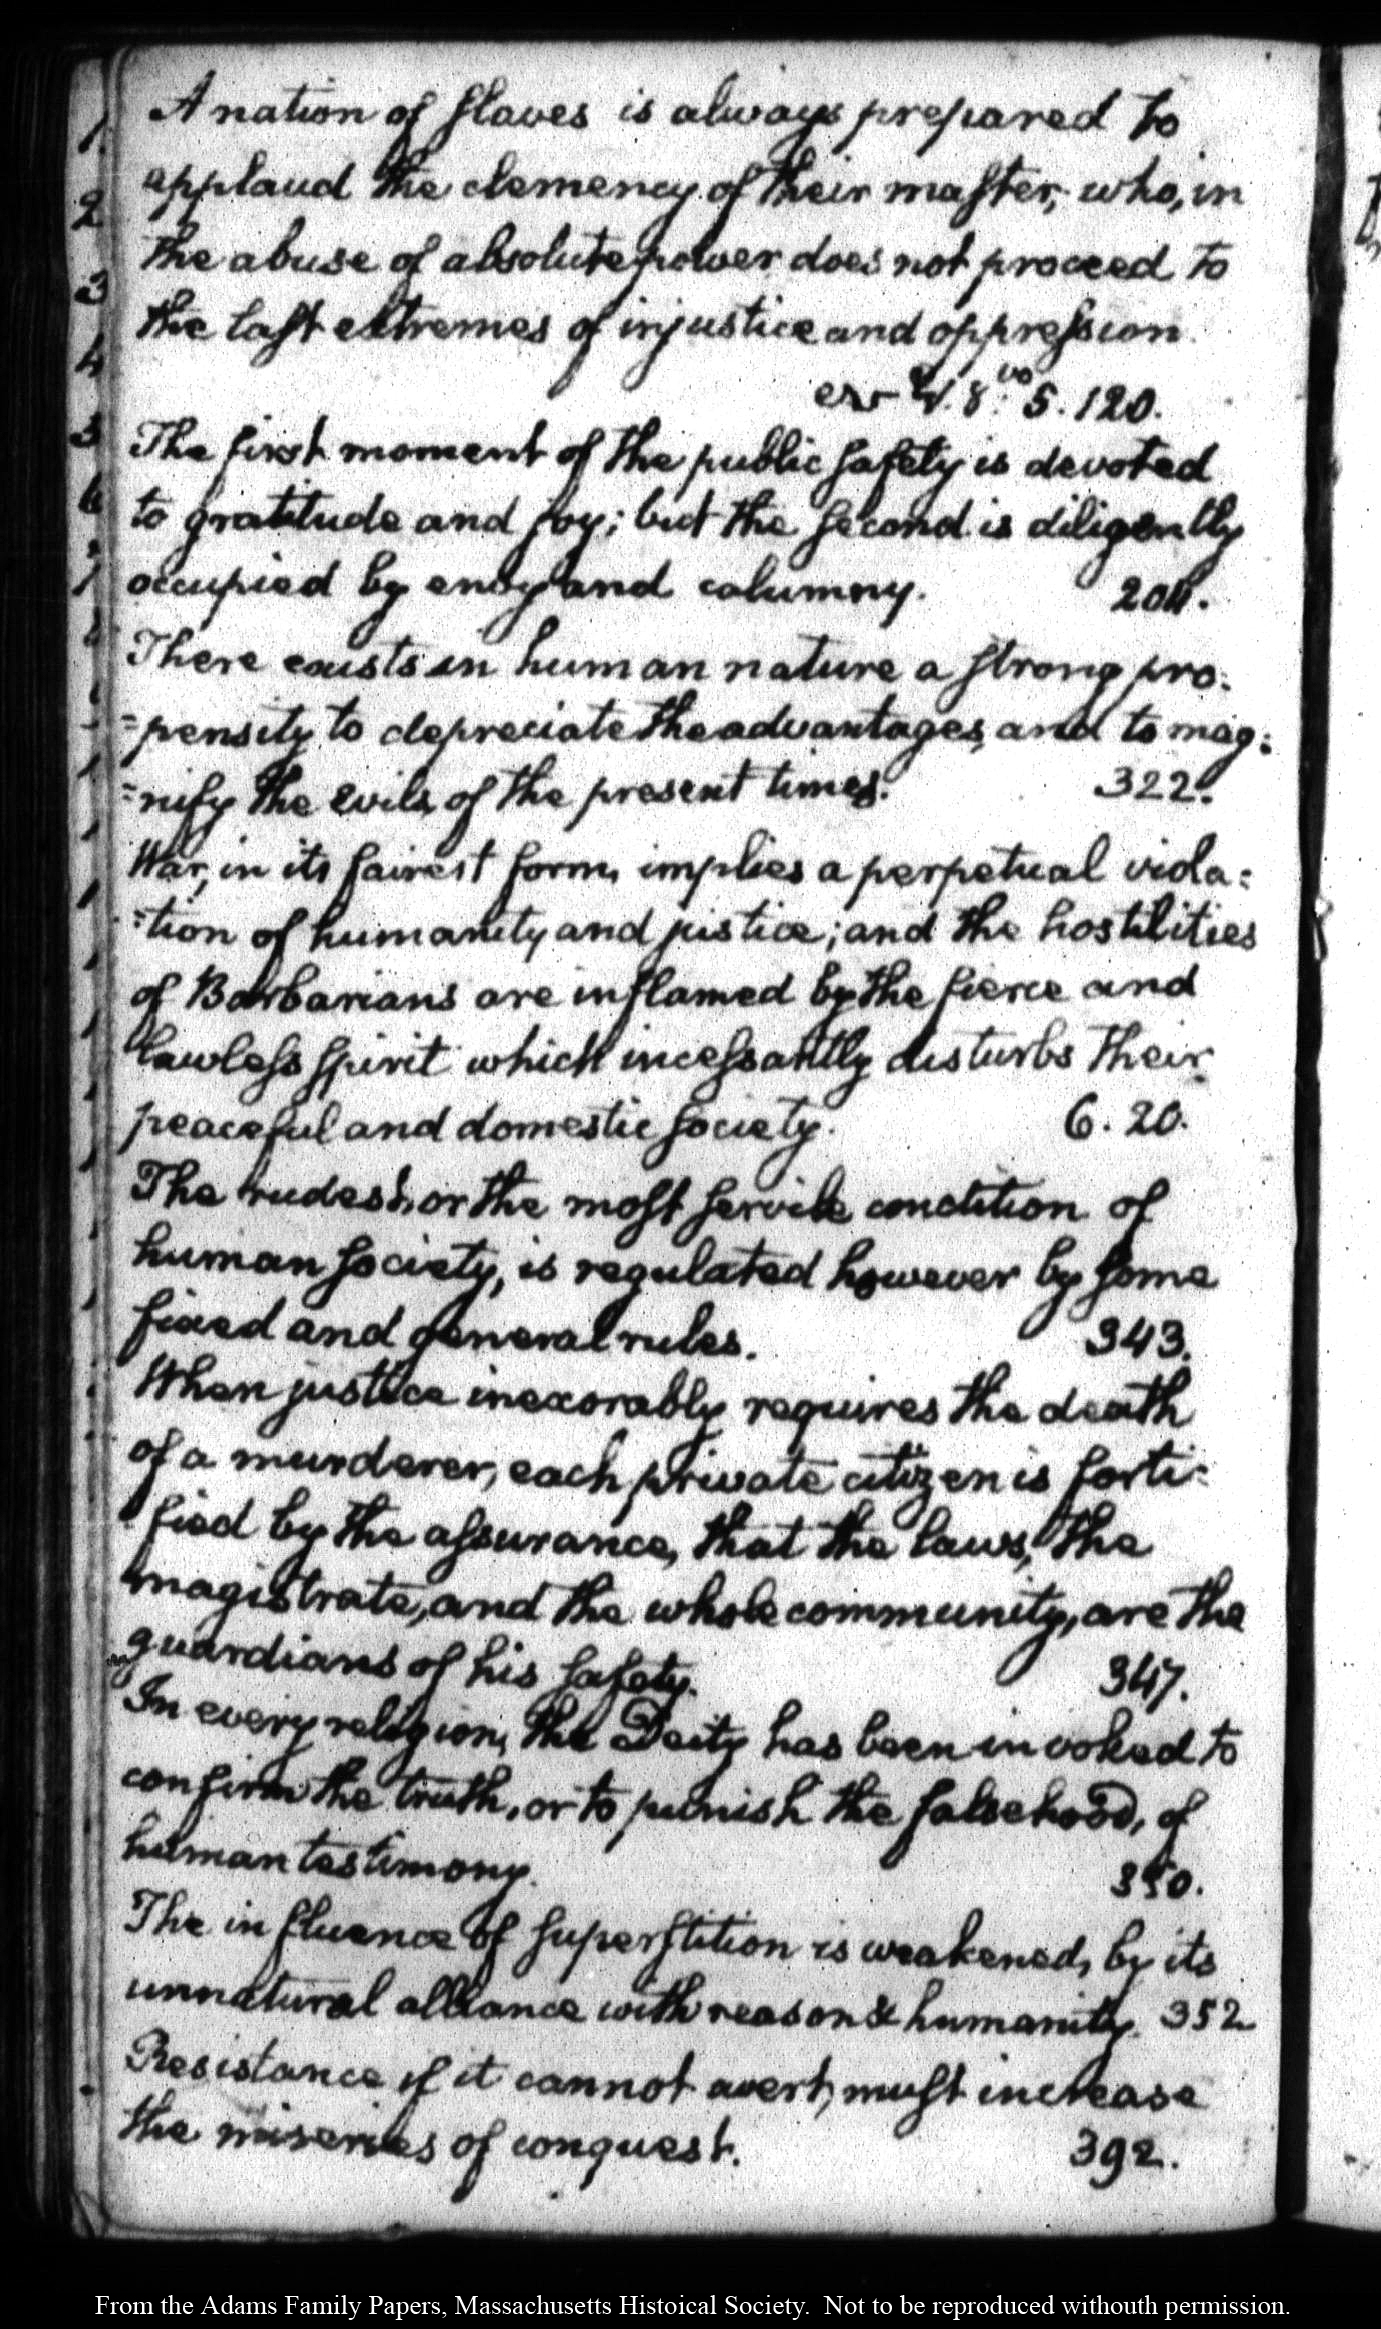 A nation of slaves is always prepared to
applaud the clemency of their master, who, in
the abuse of absolute power does not proceed to
the last extremes of injustice and oppression.
8.vo 5. 120.
The first moment of the public safety is devoted
to gratitude and joy; but the second is diligently
occupied by envy and calumny. 204.
There exists in human nature a strong pro:
=pensity to depreciate the advantages, and to mag:
=nify the evils, of the present times. 322.
War, in its fairest form, implies a perpetual viola:
=tion of humanity and justice; and the hostilities
of Barbarians are inflamed by the fierce and
lawless spirit which incessantly disturbs their
peaceful and domestic society. 6. 20.
The rudest, or the most servile condition of
human society, is regulated however by some
fixed and general rules. 343.
When justice inexorably requires the death
of a murderer, each private citizen is forti:
fied by the assurance, that the laws, the
magistrate, and the whole community, are the
guardians of his safety. 347.
In every religion, the Deity has been invoked to
confirm the truth, or to punish the falsehood, of
human testimony. 350.
The influence of superstition is weakened, by its
unnatural alliance with reason & humanity. 352
Resistance if it cannot avert, must increase
the miseries of conquest. 392.
1.
2
3
4
5
6
From the Adams Family Papers, Massachusetts Histoical Society. Not to be reproduced withouth permission.